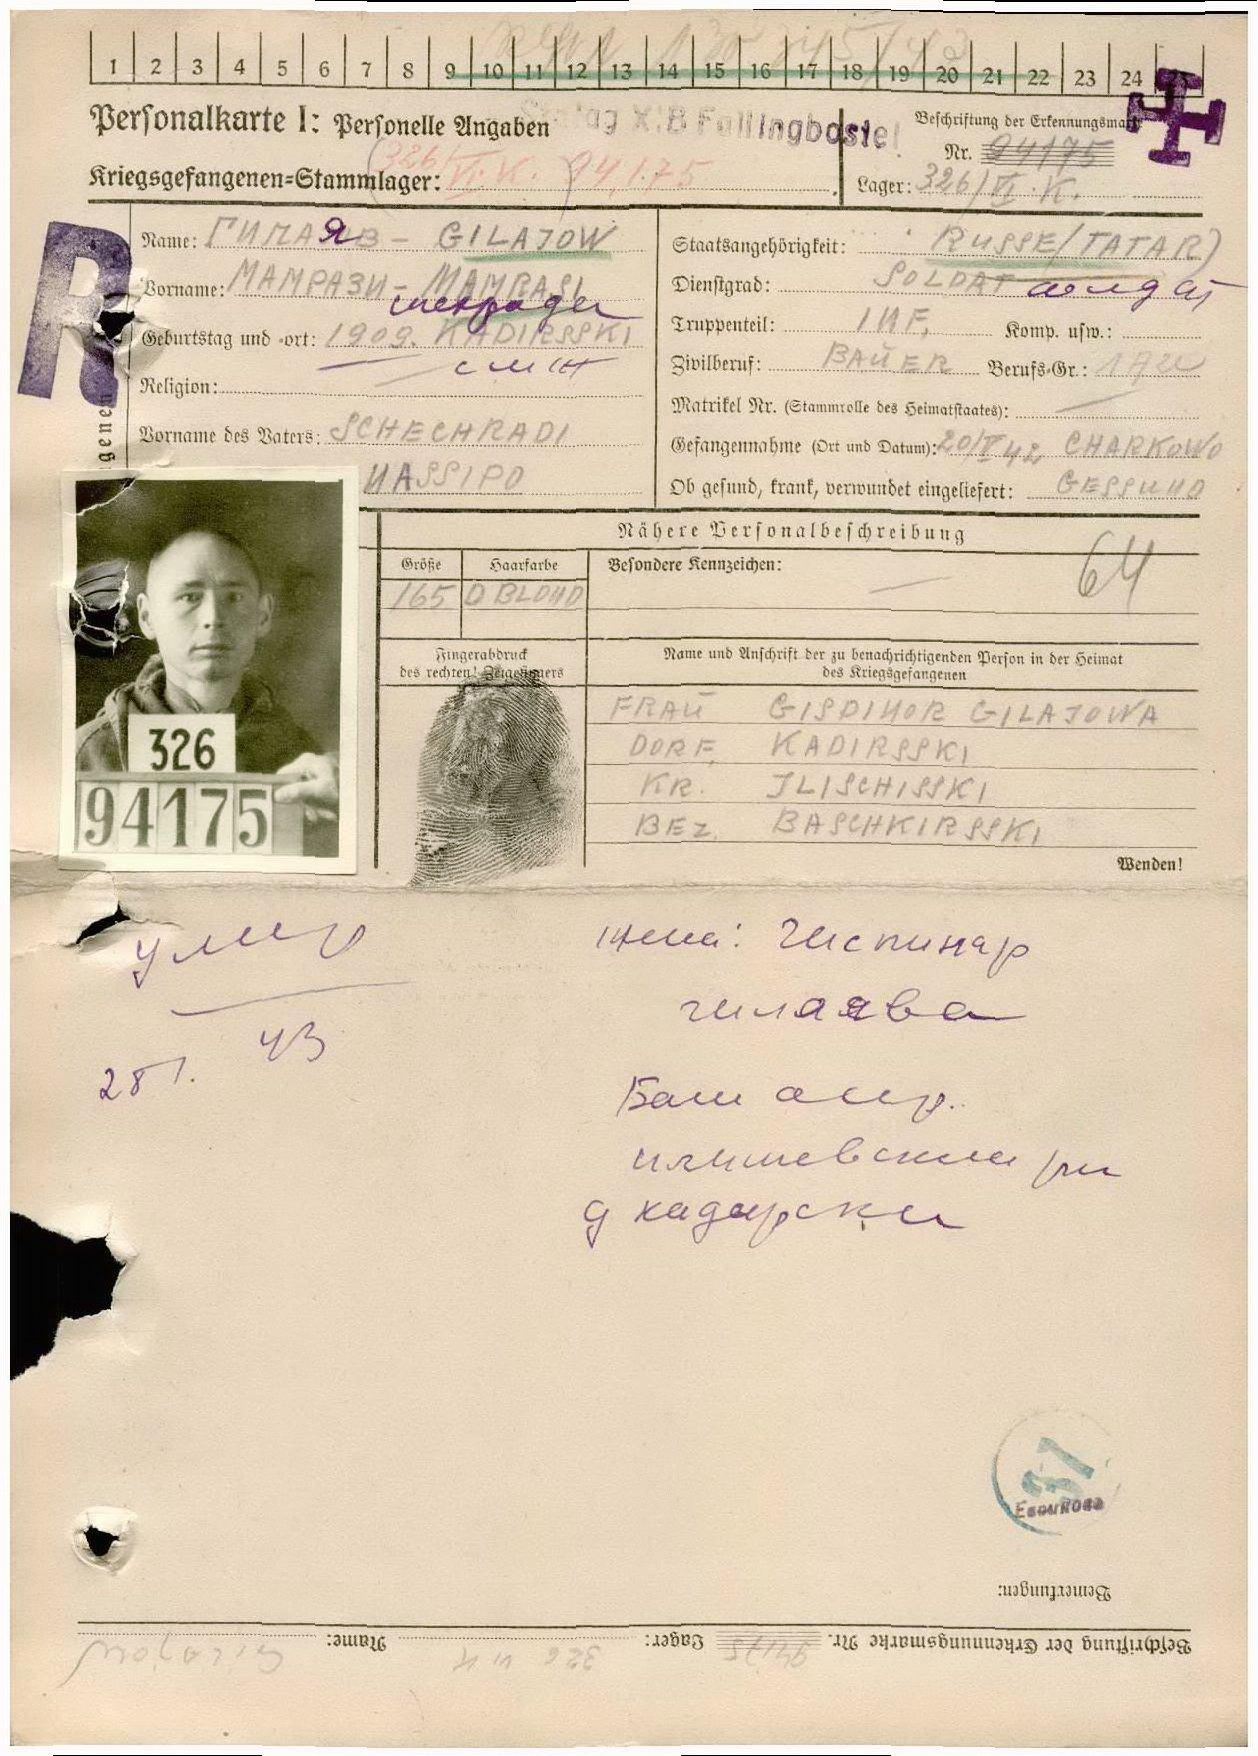 1 2 3 4 5 6 7 8 9 10 11 12 13 14 15 16 17 18 19 20 21 22 23 24 25
Personalkarte I: Personelle Angaben
Stalag XI B Fallingbostel
Beschriftung der Erkennungsmarke
Nr. 94175
Kriegsgefangenen-Stammlager: (326/VI.K.) 94175
Lager: 326/VI.K.
R
Name: ГИЛАЯВ - GILAJOW
Vorname: МАМРАЗИ - MAMRASI
Geburtstag und -ort: 1909. KADIRSSKI
Religion:
Vorname des Vaters: SCHECHRADI
genen
NASSIPO
Staatsangehörigkeit: RUSSE (TATAR)
Dienstgrad: SOLDAT солдат
Truppenteil: INF. Komp. usw.:
Zivilberuf: BAUER Berufs-Gr.:
Matrikel Nr. (Stammrolle des Heimatstaates):
Gefangennahme (Ort und Datum): 20/V 42 CHARKOWO
Ob gesund, krank, verwundet eingeliefert: GESSUND
Nähere Personalbeschreibung
Größe Haarfarbe Besondere Kennzeichen:
165 D BLOND
64
Fingerabdruck
des rechten! Zeigefingers
Name und Anschrift der zu benachrichtigenden Person in der Heimat
des Kriegsgefangenen
FRAU GISDINOR GILAJOWA
DORF. KADIRSSKI
KR. JLISCHISSKI
BEZ. BASCHKIRSSKI
Wenden!
326
94175
умер
28 1. 43
жена: Гиспинар
гилаява
Баш асср.
илишевский рн
д кадырски
51
Бемеrkungen:
Beschriftung der Erkennungsmarke Nr. 94175 Lager: 326 VI K Name: Gilajow